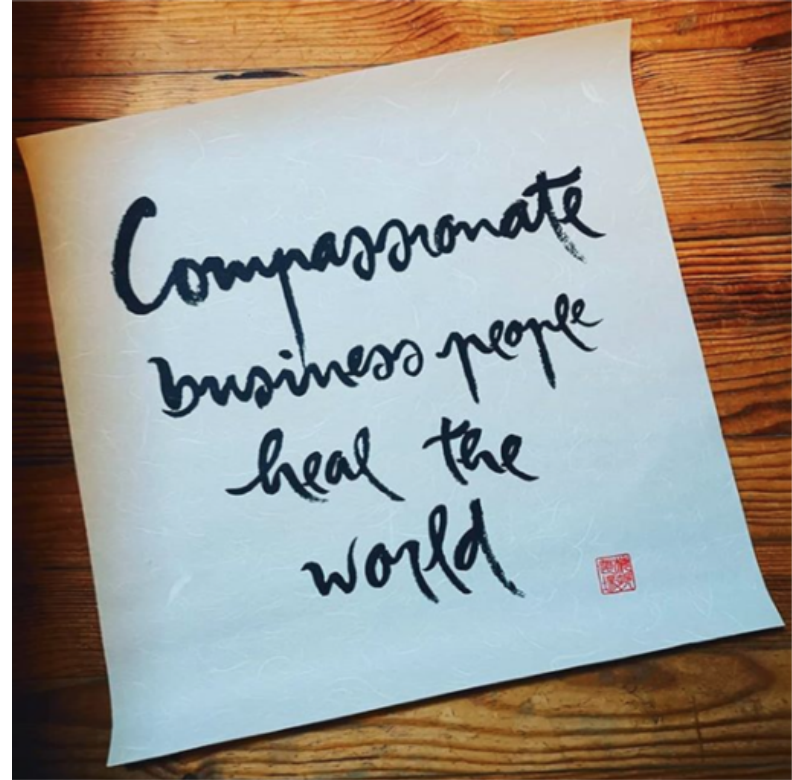 Compassionate
business people
heal the
world